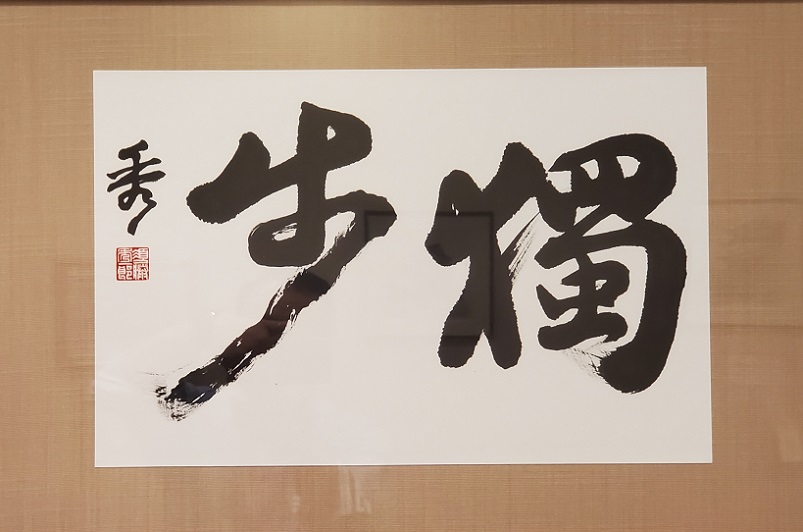 獨步
秀